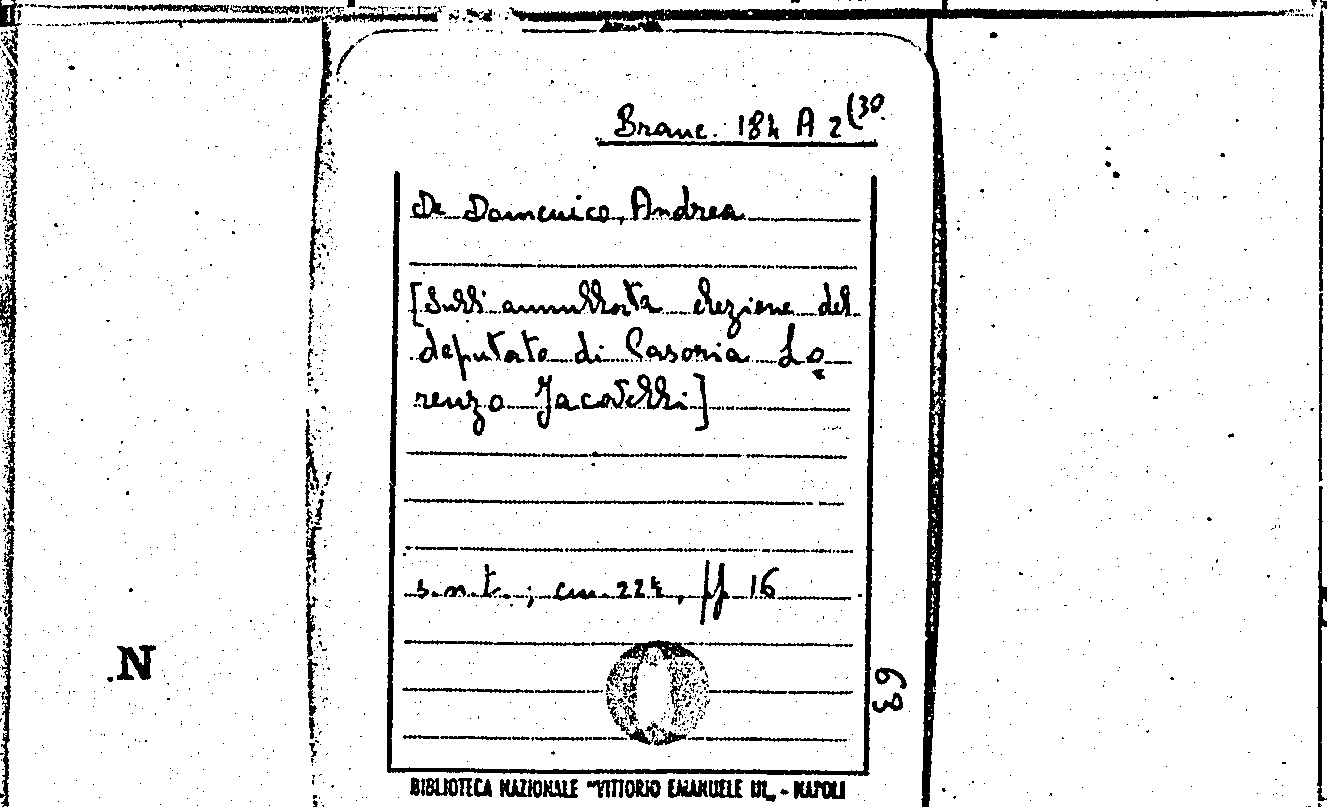 Branc. 184 A 2(30
De Domenico, Andrea
[Sull'annullata elezione del
deputato di Casoria Lo
renzo Jacovelli]
s.n.t.; cm. 22½, pp 16
63
N
BIBLIOTECA NAZIONALE "VITTORIO EMANUELE III„ - NAPOLI